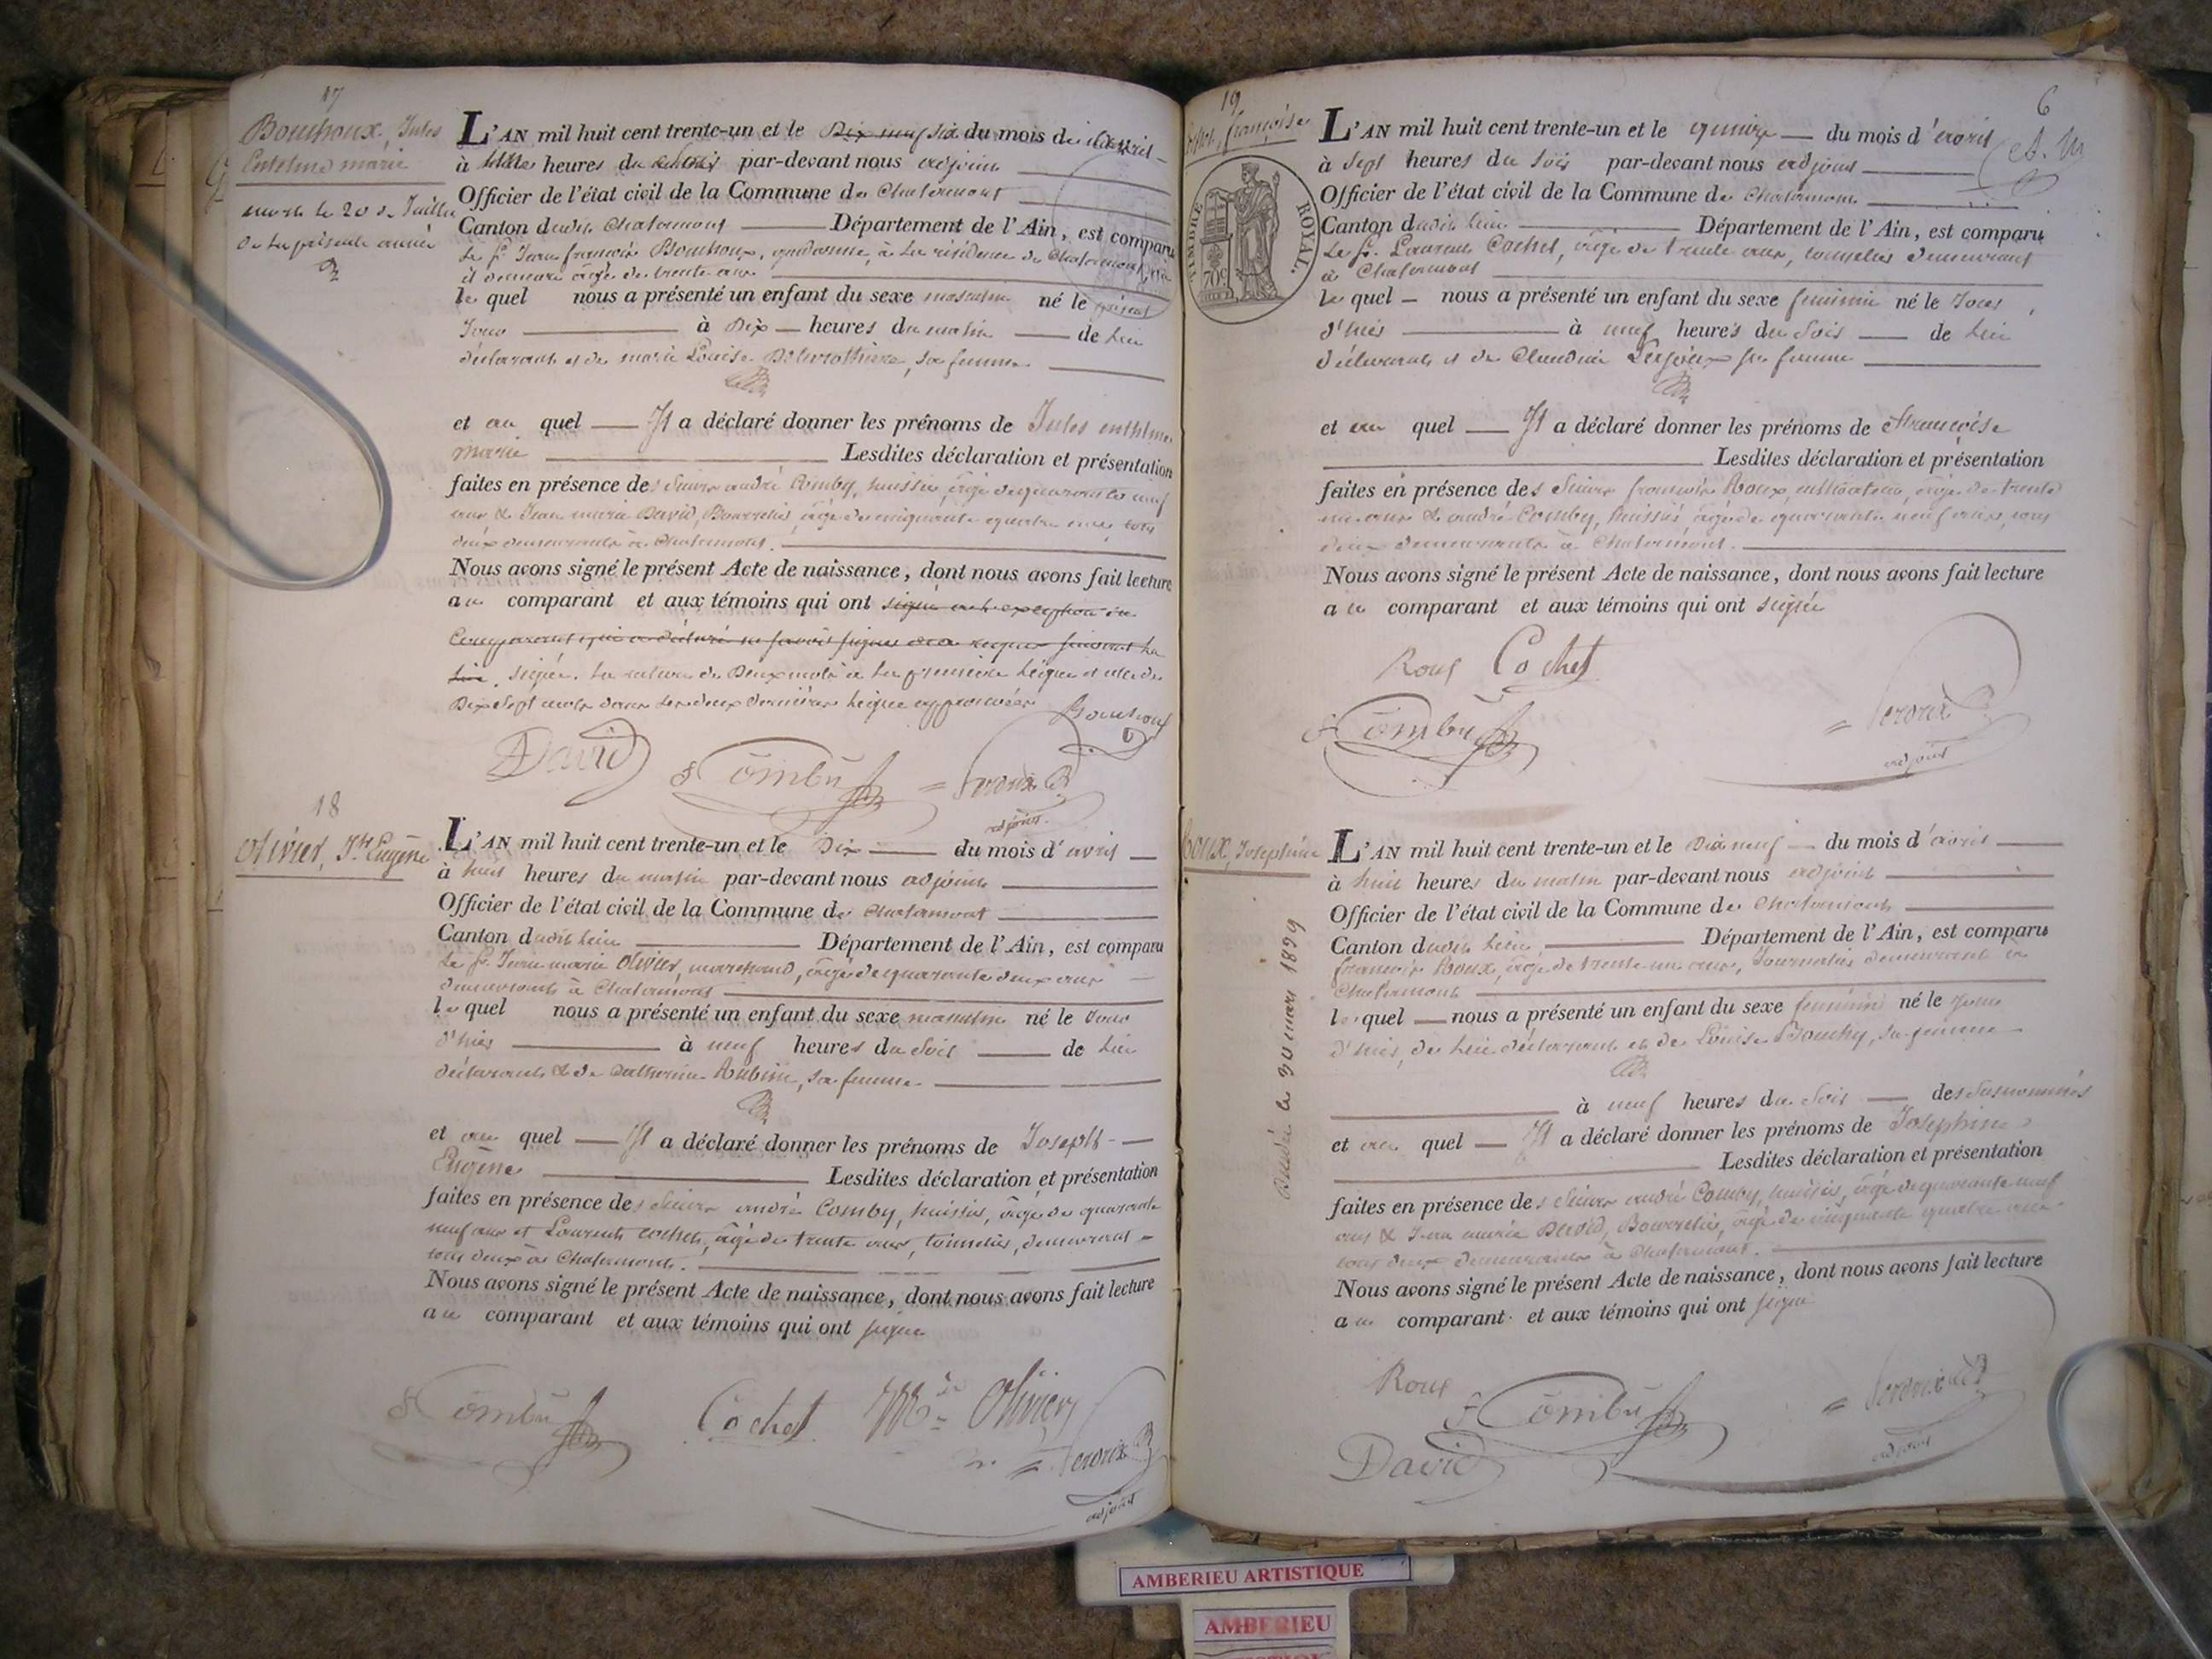 17
Bouchoux, Jules
Entelme marie
mort le 20 de Juillet
de la présente année
L'AN mil huit cent trente-un et le Dix neuf six du mois d'avril
à heures du par-devant nous adjoint
Officier de l'état civil de la Commune de Chalamont
Canton dudit Chalamont Département de l'Ain, est comparu
le Sr. Jean françois Bouchoux, gendarme, à la résidence de Chalamont,
il demeure âgé de trente ans
le quel nous a présenté un enfant du sexe masculin né le présent
Jour à Dix heures du matin de lui
déclarant et de marie Louise, sa femme
et au quel Il a déclaré donner les prénoms de Jules enthelme
marie Lesdites déclaration et présentation
faites en présence des Sieurs andré Comby, huissier, âgé de quarante neuf
ans & Jean marie David, Bourrelier, âgé de cinquante quatre ans, tous
deux demeurants à Chalamont.
Nous avons signé le présent Acte de naissance, dont nous avons fait lecture
au comparant et aux témoins qui ont signé à l'exception du
Comparant, qui a déclaré ne savoir signer de ce requis suivant la
loi. signé. la rature de Deux mots à la première ligne et celle de
Dix Sept mots dans les deux dernières lignes approuvées Bouchoux
David Comby
adjoint.
18
Olivier, Jh Eugène
L'AN mil huit cent trente-un et le Dix du mois d'avril
à huit heures du matin par-devant nous adjoint
Officier de l'état civil de la Commune de Chalamont
Canton dudit lieu Département de l'Ain, est comparu
le Sr. Jean marie Olivier, marchand, âgé de quarante deux ans
demeurant à Chalamont
le quel nous a présenté un enfant du sexe masculin né le Jour
d'hier à neuf heures du Soir de lui
déclarant & de Catherine Aubin, sa femme
et au quel Il a déclaré donner les prénoms de Joseph
Eugène Lesdites déclaration et présentation
faites en présence des Sieurs andré Comby, huissier, âgé de quarante
neuf ans et Laurent Cochet, âgé de trente ans, tonnelier, demeurant
tous deux à Chalamont.
Nous avons signé le présent Acte de naissance, dont nous avons fait lecture
au comparant et aux témoins qui ont signé
Comby Cochet Olivier
adjoint
19 6
françoise
TIMBRE ROYAL.
70c
L'AN mil huit cent trente-un et le quinze du mois d'avril
à sept heures du soir par-devant nous adjoint
Officier de l'état civil de la Commune de Chalamont
Canton dudit lieu Département de l'Ain, est comparu
le Sr. Laurent Cochet, âgé de trente ans, tonnelier demeurant
à Chalamont
le quel nous a présenté un enfant du sexe feminin né le Jour
d'hier à neuf heures du Soir de lui
déclarant et de Claudine sa femme
et au quel Il a déclaré donner les prénoms de françoise
Lesdites déclaration et présentation
faites en présence des Sieurs françois Roux, âgé de trente
un ans & andré Comby, huissier, âgé de quarante neuf ans, tous
deux demeurants à Chalamont.
Nous avons signé le présent Acte de naissance, dont nous avons fait lecture
au comparant et aux témoins qui ont signé
Roux Cochet
Comby
adjoint
Roux, Josephine
30 mars 1899
L'AN mil huit cent trente-un et le Dix neuf du mois d'avril
à huit heures du matin par-devant nous adjoint
Officier de l'état civil de la Commune de Chalamont
Canton dudit lieu Département de l'Ain, est comparu
françois Roux, âgé de trente un ans, Journalier demeurant à
Chalamont
le quel nous a présenté un enfant du sexe feminin né le Jour
d'hier, de lui déclarant et de Louise Bouchy, sa femme
à neuf heures du Soir des susnommés
et au quel Il a déclaré donner les prénoms de Josephine
Lesdites déclaration et présentation
faites en présence des Sieurs andré Comby, huissier, âgé de quarante neuf
ans & Jean marie David, Bourrelier, âgé de cinquante quatre ans
tous deux demeurants à Chalamont.
Nous avons signé le présent Acte de naissance, dont nous avons fait lecture
au comparant et aux témoins qui ont signé
Roux
Comby
David
adjoint
AMBERIEU ARTISTIQUE
AMBERIEU